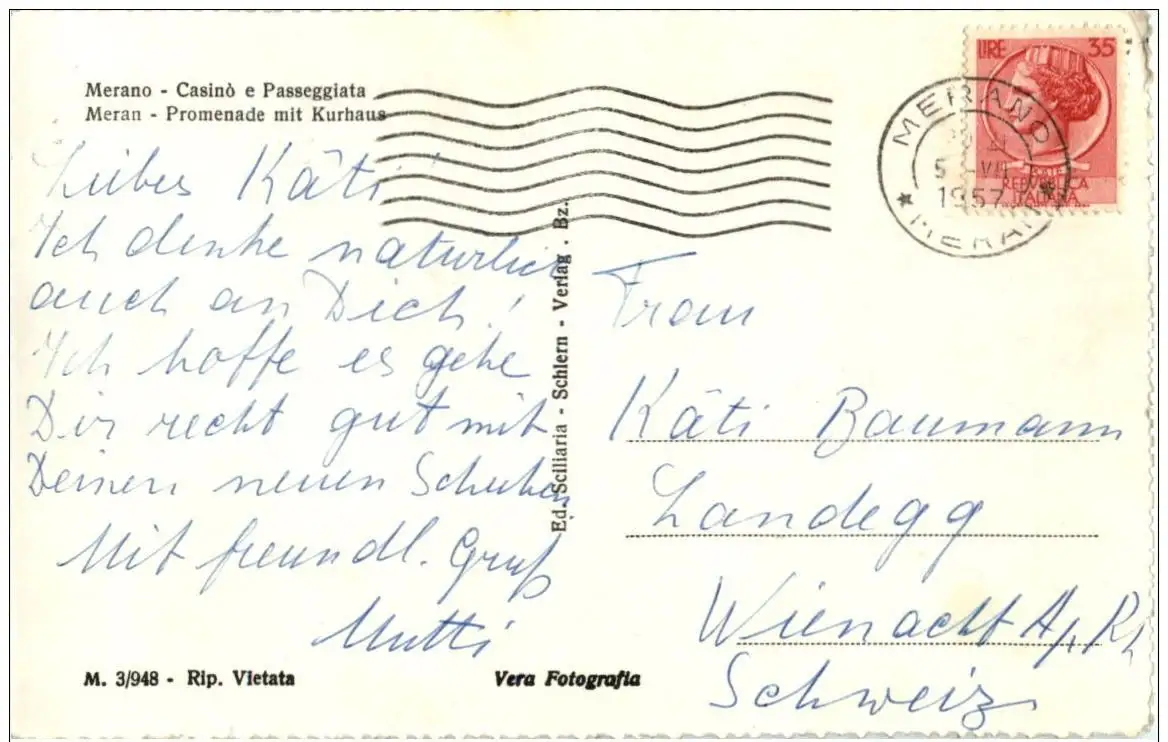 Merano - Casinò e Passeggiata
Meran - Promenade mit Kurhaus
Liebes Käti
Ich denke natürlich
auch an Dich!
Ich hoffe es gehe
Dir recht gut mit
Deinen neuen Schuhen
Mit freundl. Gruß
Mutti
M. 3/948 - Rip. Vietata
Vera Fotografia
Ed. Sciliaria - Schlern - Verlag . Bz.
LIRE 35
REPUBBLICA
ITALIANA
MERANO
5 -VII
1957
* MERAN *
Frau
Käti Baumann
Landegg
Wienacht A/Rh
Schweiz